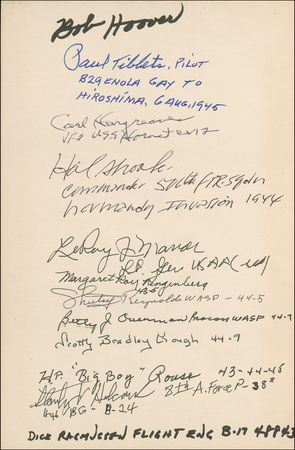 Bob Hoover
Paul Tibbets, PILOT
B29 ENOLA GAY TO
HIROSHIMA, 6 AUG, 1945
Carl Hargreaves
USS Hornet CV12
Hal Shook
Commander
Normandy Invasion 1944
LeRoy J Manor
Lt. Gen USAF (ret)
Margaret Ray Ringenberg
43-5
Shirley Reynolds WASP - 44-5
Betty J Overman WASP 44-7
Scotty Bradley Gough 44-7
H.P. "Big Boy" Rouse 43-44-45
8th A. Force P-38s
BG - B-24
DICK RASMUSSEN FLIGHT ENG B-17